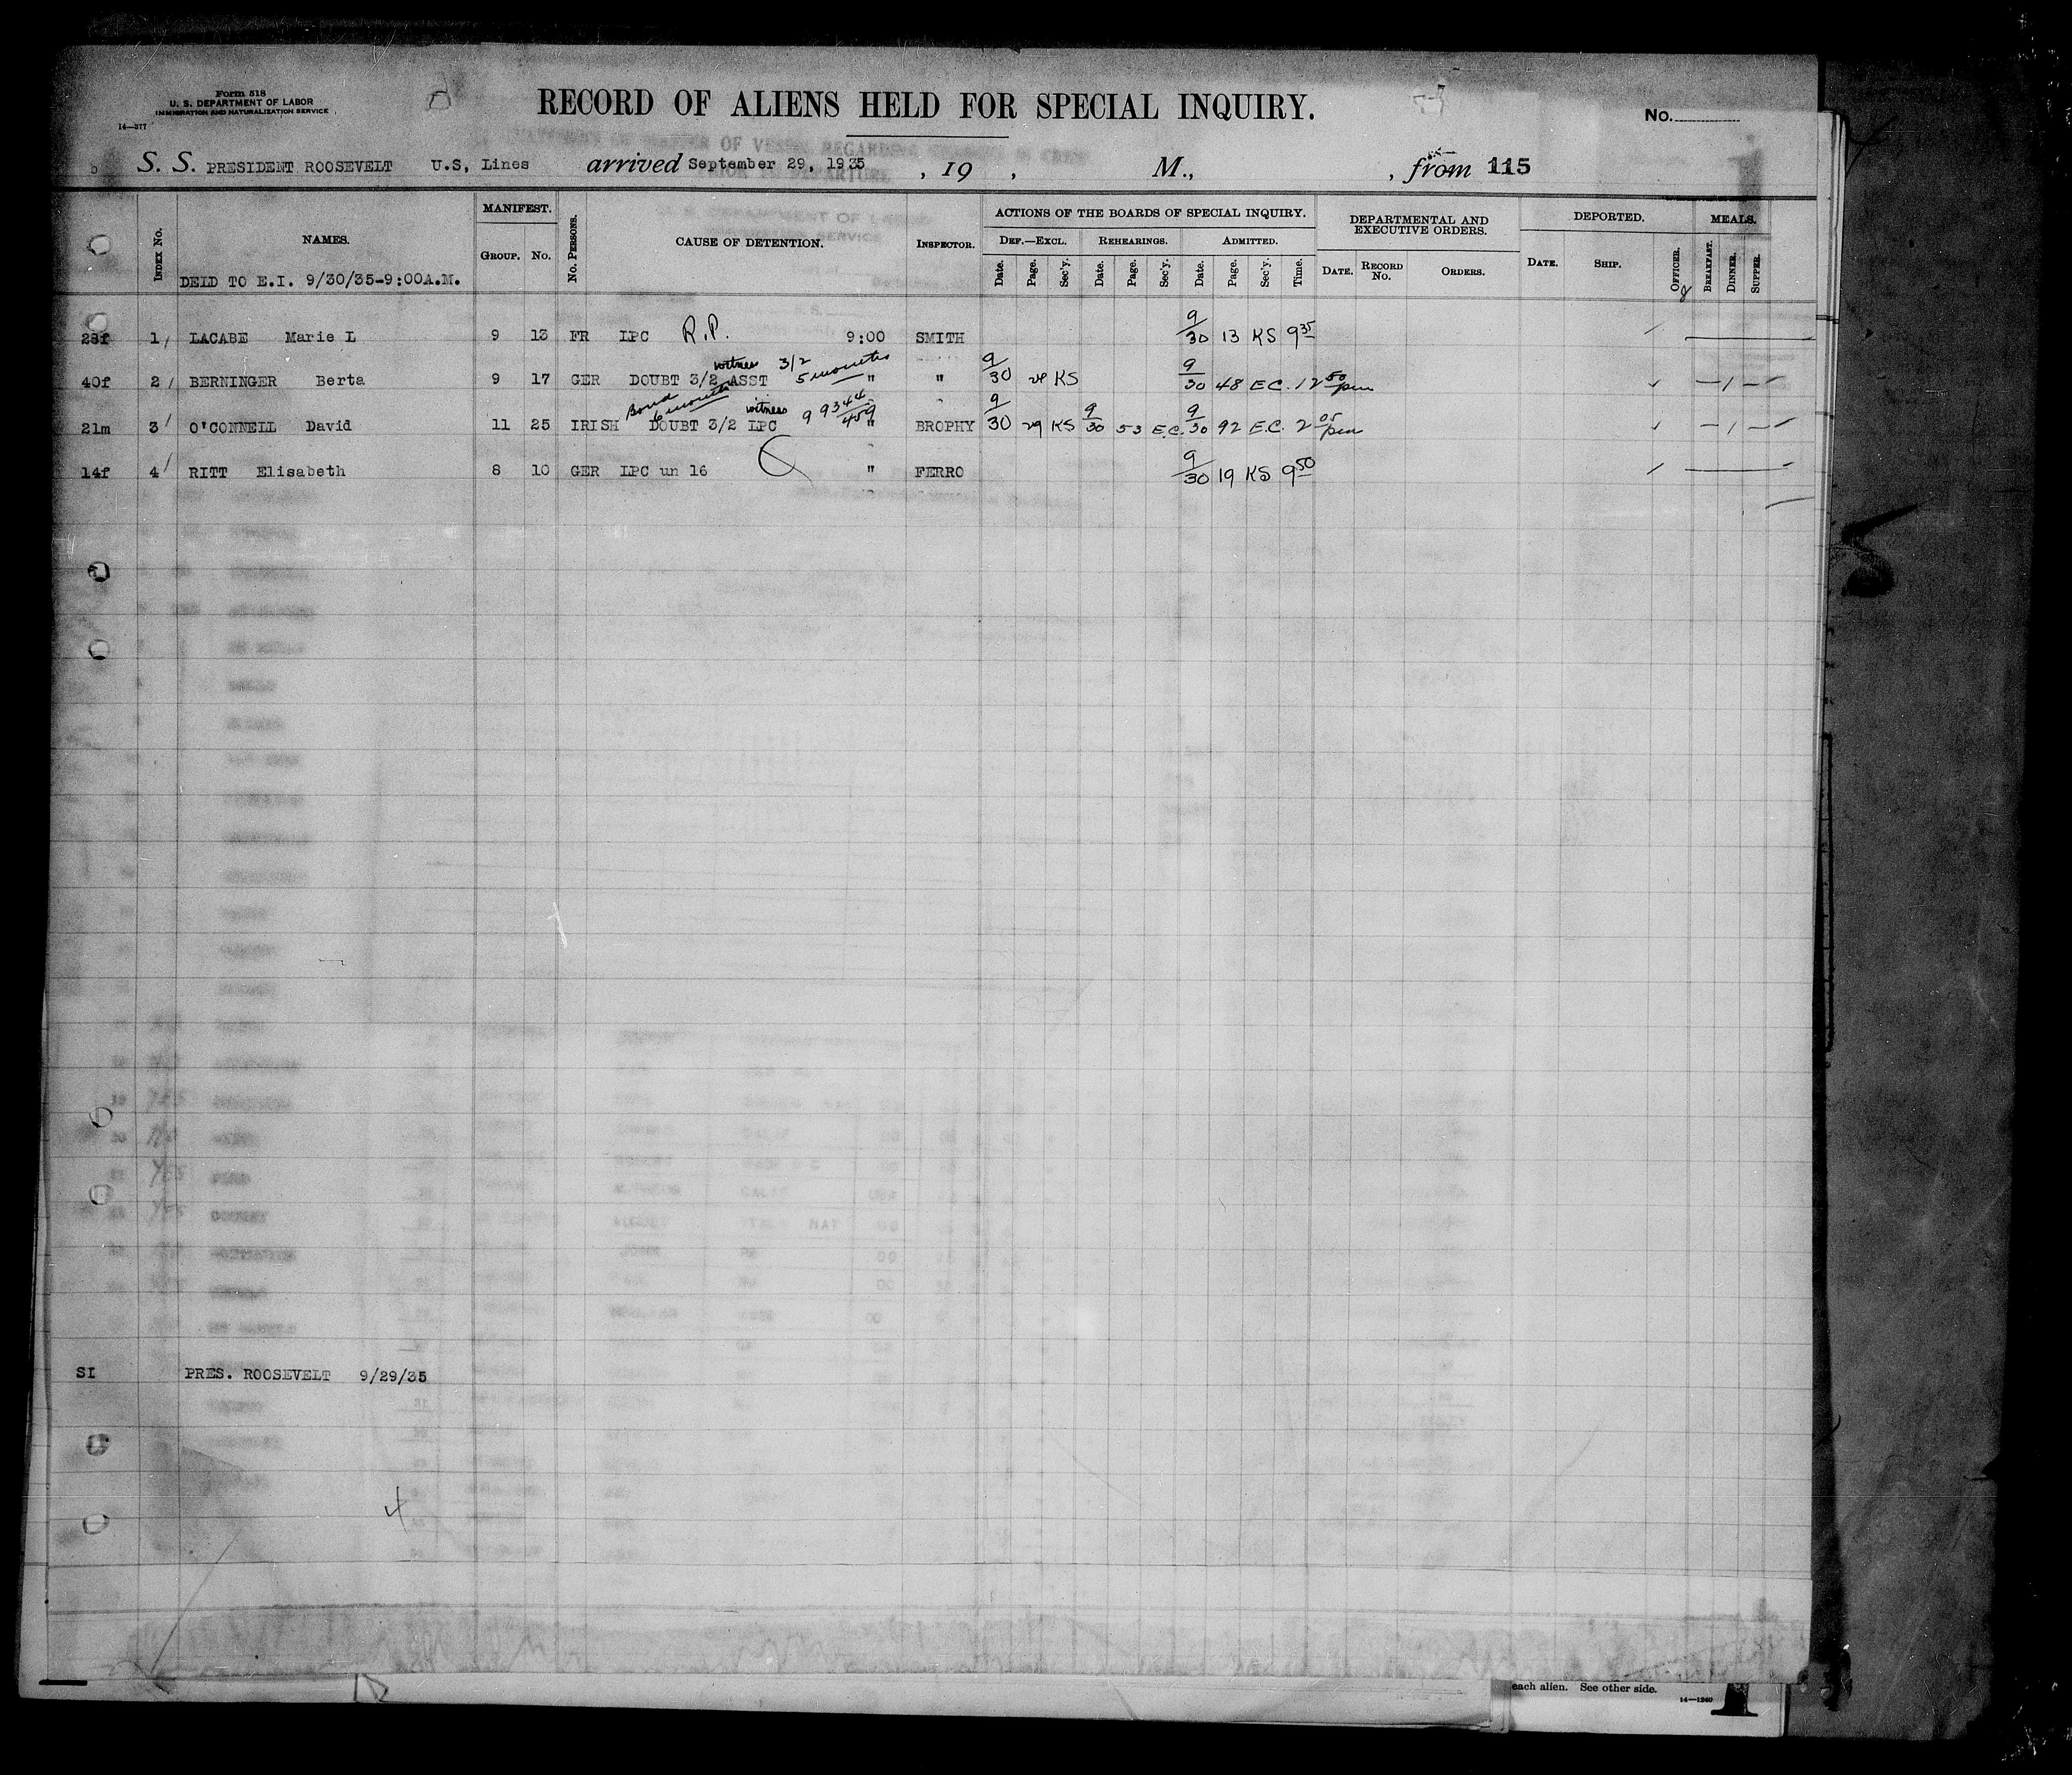 Form 518
U. S. DEPARTMENT OF LABOR
IMMIGRATION AND NATURALIZATION SERVICE
14—377
RECORD OF ALIENS HELD FOR SPECIAL INQUIRY.
No.
S. S. PRESIDENT ROOSEVELT U.S, Lines arrived September 29, 1935, 19 , M., , from 115
INDEX No. NAMES. MANIFEST. GROUP. No. No. PERSONS. CAUSE OF DETENTION. INSPECTOR. ACTIONS OF THE BOARDS OF SPECIAL INQUIRY. DEPARTMENTAL AND EXECUTIVE ORDERS. DEPORTED. MEALS.
DEF.—EXCL. REHEARINGS. ADMITTED.
Date. Page. Sec'y. Date. Page. Sec'y. Date. Page. Sec'y. Time. DATE. RECORD No. ORDERS. DATE. SHIP. OFFICER. BREAKFAST. DINNER. SUPPER.
DELD TO E.I. 9/30/35-9:00A.M.
28f 1 LACABE Marie L 9 13 FR LPC R.P. 9:00 SMITH 9/30 13 KS 9 35
witness 3/2 5 months
40f 2 BERNINGER Berta 9 17 GER DOUBT 3/2 ASST " " 9/30 KS 9/30 48 E.C. 12 50 pm
Bond 6 months witness 9 9344/459
21m 3 O'CONNELL David 11 25 IRISH DOUBT 3/2 LPC " BROPHY 9/30 29 KS 9/30 53 E.C. 9/30 92 E.C. 2 05 pm
14f 4 RITT Elisabeth 8 10 GER LPC un 16 " FERRO 9/30 19 KS 9 50
SI PRES. ROOSEVELT 9/29/35
4
each alien. See other side.
14—1240